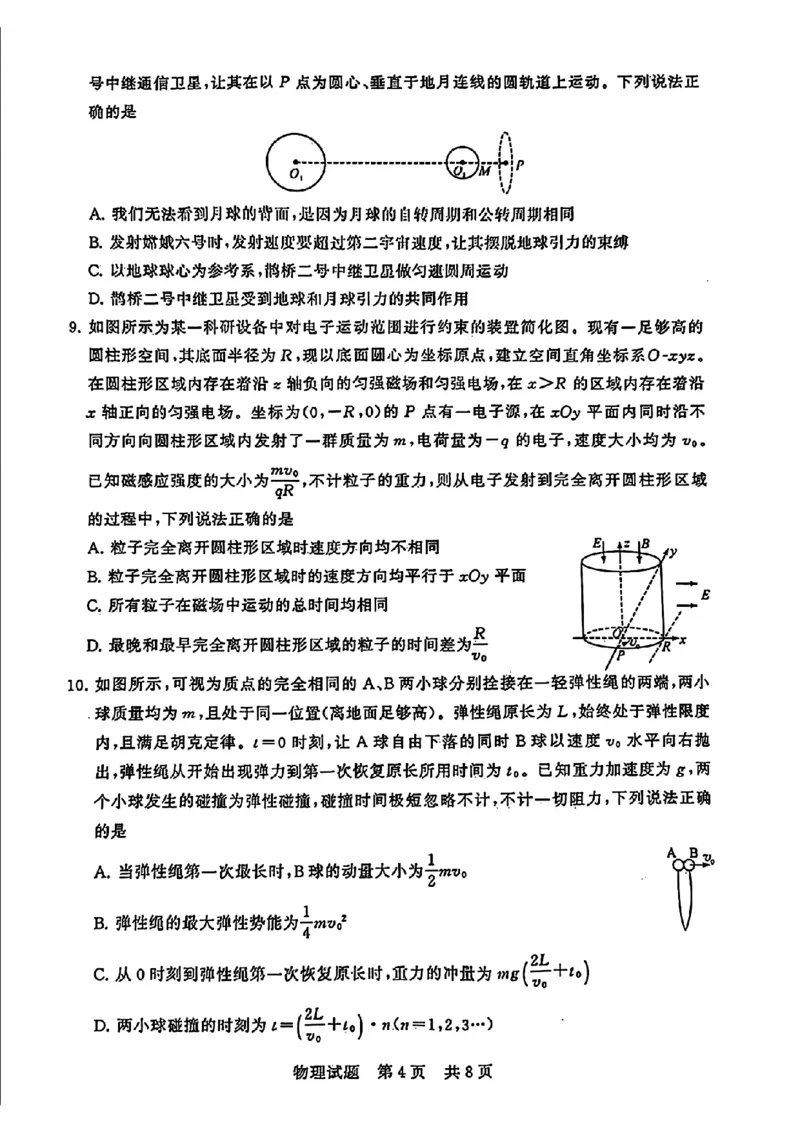 号中继通信卫星,让其在以 P 点为圆心、垂直于地月连线的圆轨道上运动。下列说法正
确的是
O₁ O₂ M P
A. 我们无法看到月球的背面,是因为月球的自转周期和公转周期相同
B. 发射嫦娥六号时,发射速度要超过第二宇宙速度,让其摆脱地球引力的束缚
C. 以地球球心为参考系,鹊桥二号中继卫星做匀速圆周运动
D. 鹊桥二号中继卫星受到地球和月球引力的共同作用
9. 如图所示为某一科研设备中对电子运动范围进行约束的装置简化图。现有一足够高的
圆柱形空间,其底面半径为 R,现以底面圆心为坐标原点,建立空间直角坐标系O-xyz。
在圆柱形区域内存在着沿 z 轴负向的匀强磁场和匀强电场,在 x>R 的区域内存在着沿
x 轴正向的匀强电场。坐标为(0,-R,0)的 P 点有一电子源,在 xOy 平面内同时沿不
同方向向圆柱形区域内发射了一群质量为 m,电荷量为-q 的电子,速度大小均为 v₀。
已知磁感应强度的大小为mv₀/qR,不计粒子的重力,则从电子发射到完全离开圆柱形区域
的过程中,下列说法正确的是
A. 粒子完全离开圆柱形区域时速度方向均不相同
B. 粒子完全离开圆柱形区域时的速度方向均平行于 xOy 平面
C. 所有粒子在磁场中运动的总时间均相同
D. 最晚和最早完全离开圆柱形区域的粒子的时间差为R/v₀
E z B y E O v₀ P R x
10. 如图所示,可视为质点的完全相同的 A、B 两小球分别拴接在一轻弹性绳的两端,两小
球质量均为 m,且处于同一位置(离地面足够高)。弹性绳原长为 L,始终处于弹性限度
内,且满足胡克定律。t=0 时刻,让 A 球自由下落的同时 B 球以速度 v₀ 水平向右抛
出,弹性绳从开始出现弹力到第一次恢复原长所用时间为 t₀。已知重力加速度为 g,两
个小球发生的碰撞为弹性碰撞,碰撞时间极短忽略不计,不计一切阻力,下列说法正确
的是
A. 当弹性绳第一次最长时,B 球的动量大小为1/2mv₀
B. 弹性绳的最大弹性势能为1/4mv₀²
C. 从 0 时刻到弹性绳第一次恢复原长时,重力的冲量为 mg(2L/v₀+t₀)
D. 两小球碰撞的时刻为 t=(2L/v₀+t₀)·n(n=1,2,3…)
A B v₀
物理试题 第4页 共8页